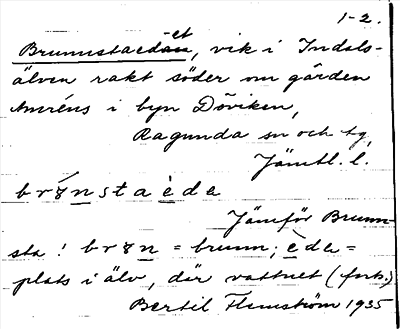 1-2.
Brunnstaedet, vik i Indals-
älven rakt söder om gården
Amréns i byn Döviken,
Ragunda sn och tg,
Jämtl. l.
brɤnstaède
Jämför Brunn-
sta! brɤn = brunn; ède =
plats i älv, där vattnet (forts.)
Bertil Flemström 1935